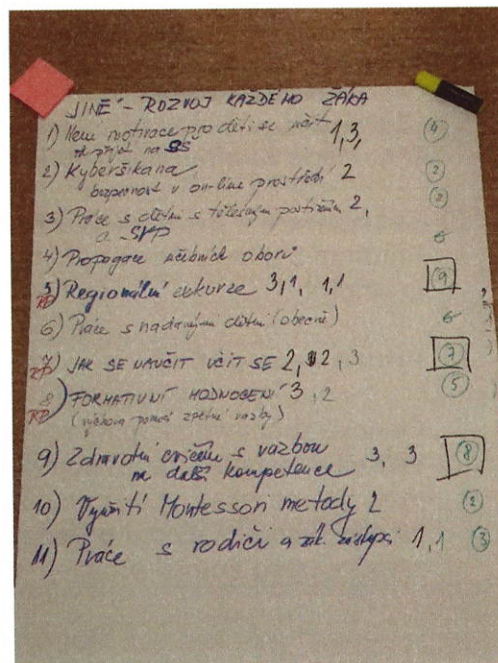 "JINÉ" - ROZVOJ KAŽDÉHO ŽÁKA
1) Není motivace pro děti se učit 1,3, (4)
a přijít na SŠ
2) Kyberšikana, (2)
bezpečnost v on-line prostředí 2
3) Práce s dětmi s tělesným postižením 2, (2)
a SVP
4) Propagace učebních oborů
5) Regionální exkurze 3,1, 1,1 (9)
6) Práce s nadanými dětmi (obecně)
7) JAK SE NAUČIT UČIT SE 2, 2, 3 (7)
8) FORMATIVNÍ HODNOCENÍ 3, 2 (5)
(výchova pomocí zpětné vazby)
9) Zdravotní cvičení s vazbou 3, 3 (8)
na další kompetence
10) Využití Montessori metody 2 (2)
11) Práce s rodiči a zák. zástupci 1,1 (3)